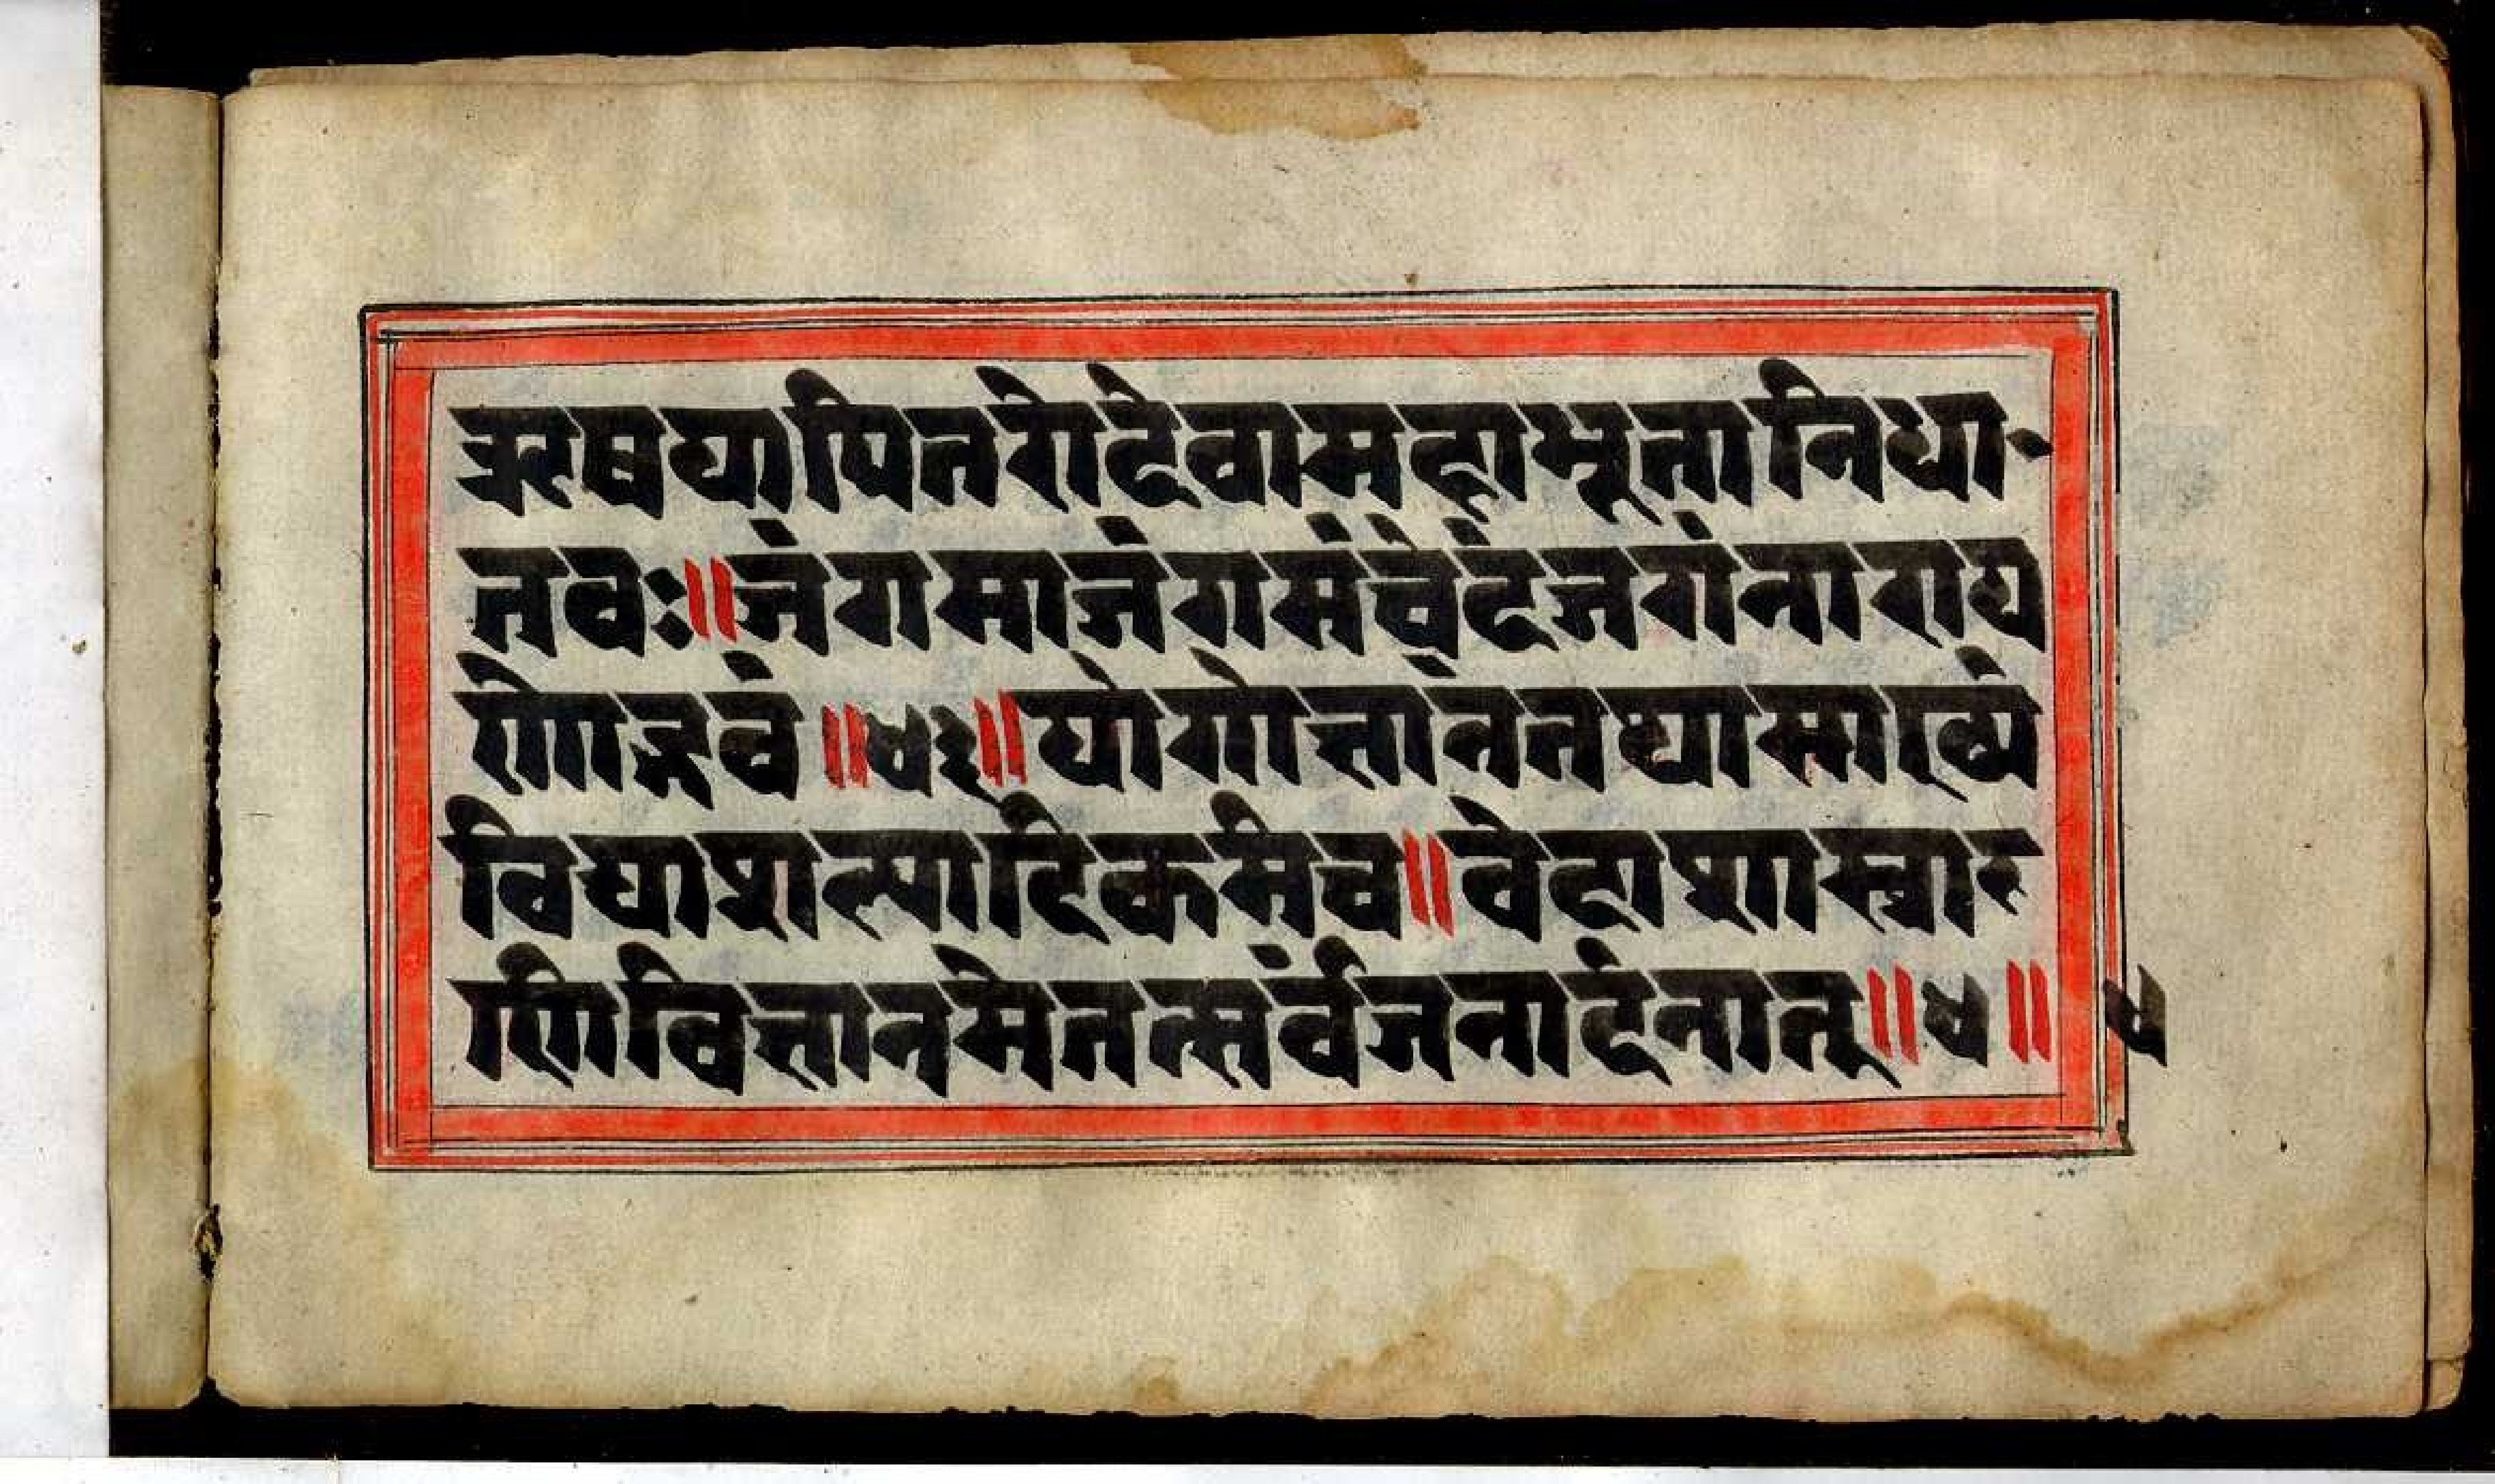 ऋषयापितरोदेवामहाभूतानिधा-
तवः॥जंगमाजंगमंचेदंजगंनाराय
णोद्भवं॥५३॥योगोज्ञानंतथासांख्यं
विद्याशल्पादिकर्मच॥वेदाशास्त्रार
णिविज्ञानमेतत्सर्वंजनार्दनात्॥५॥ ५